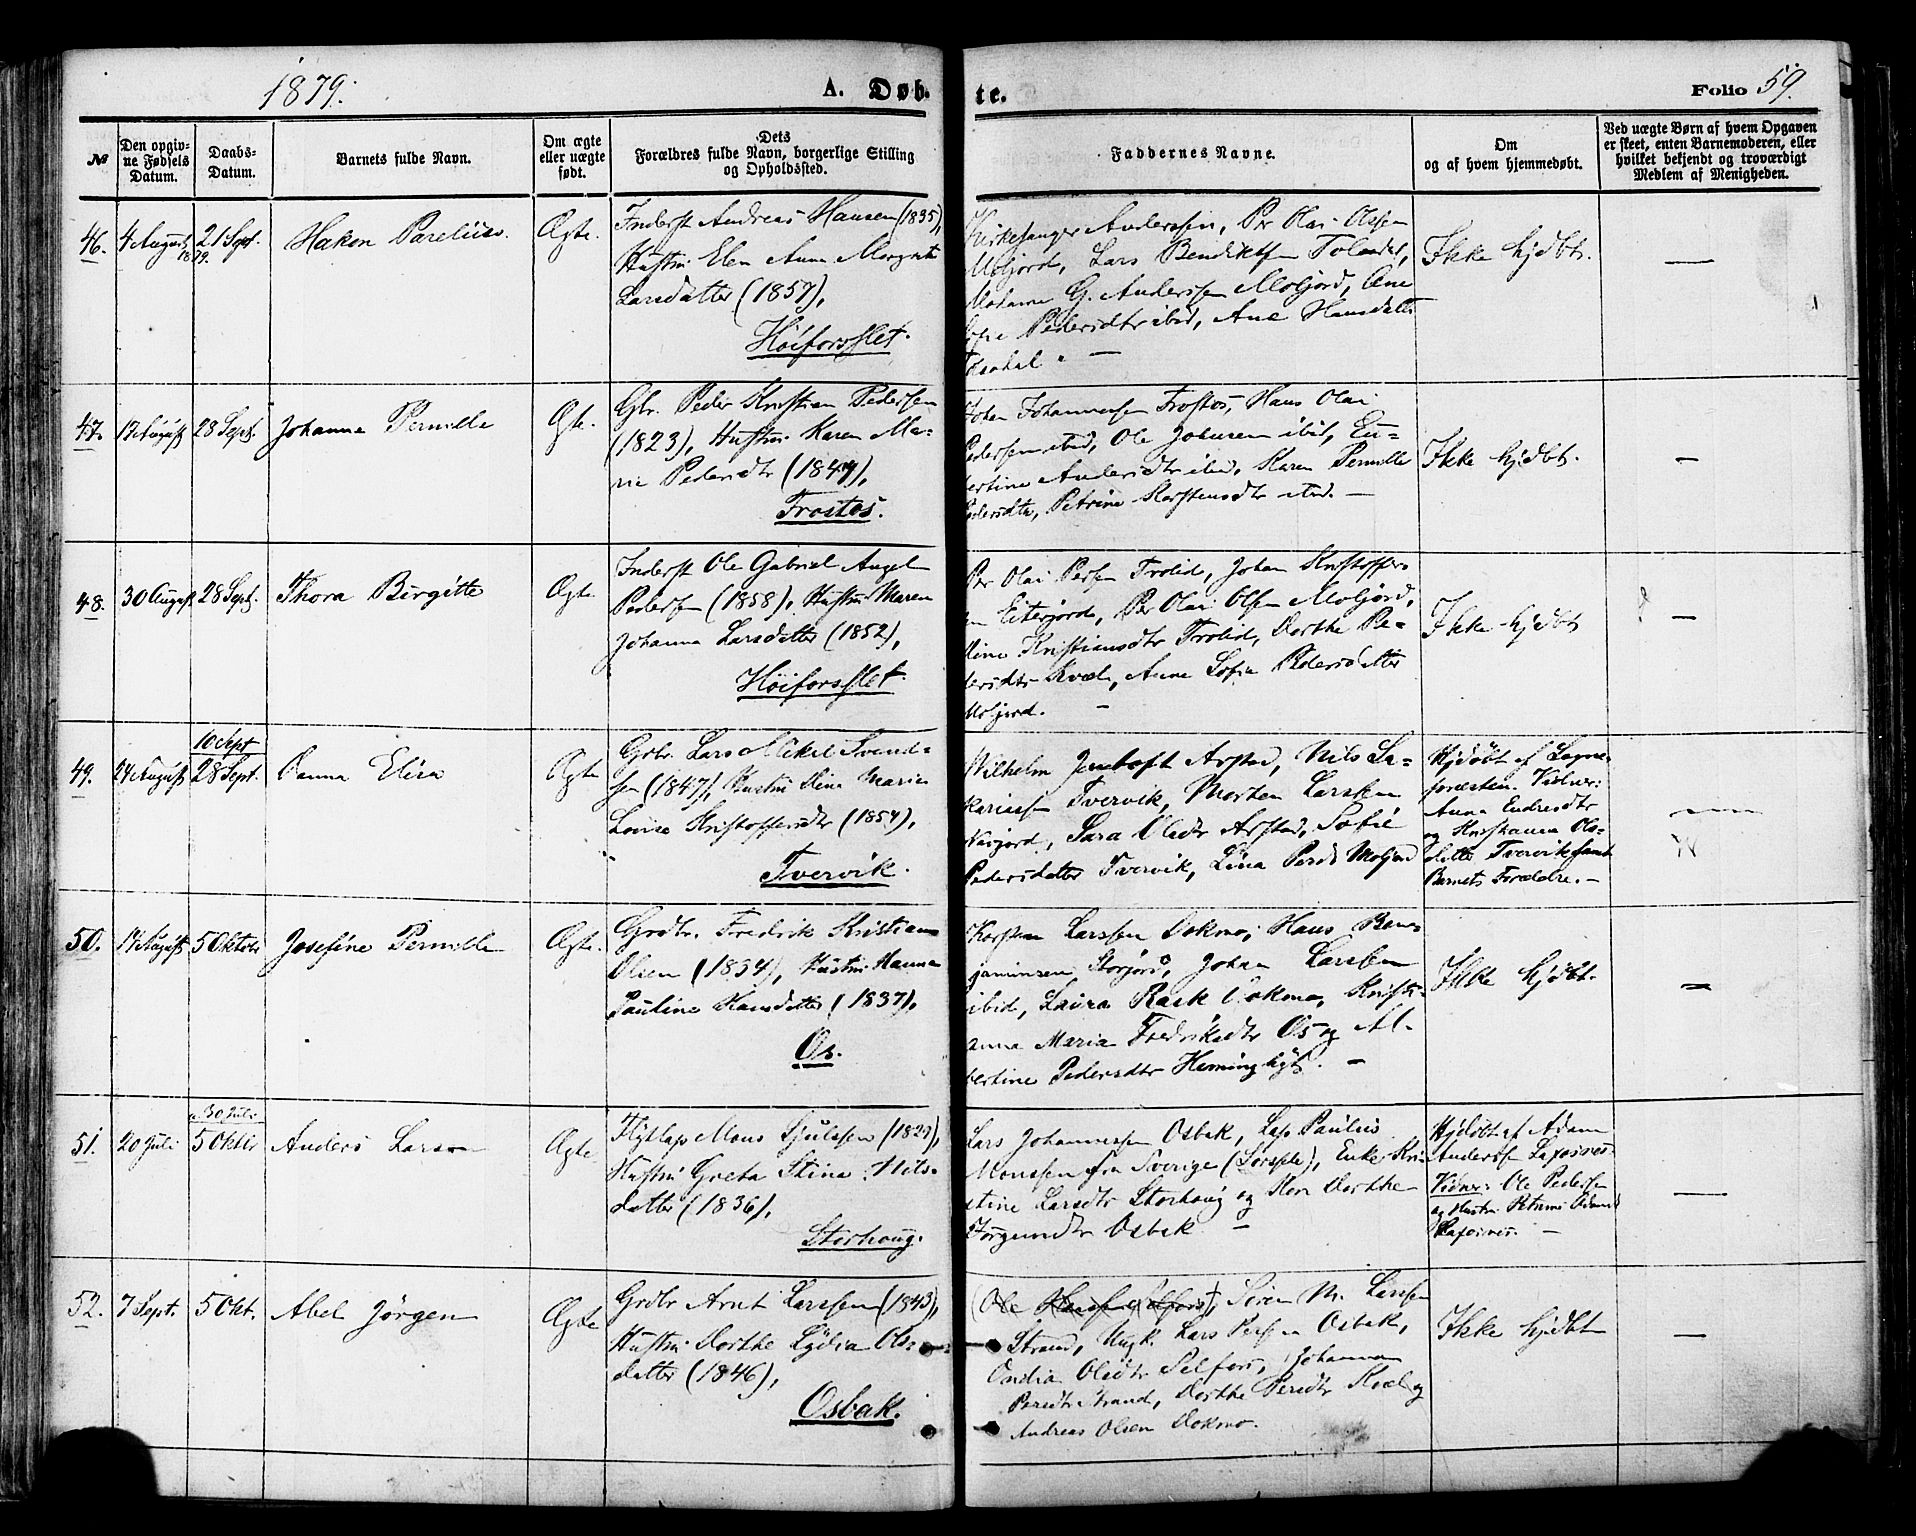 1879.
A. Døb-
te.
Folio 59.
№
Den opgiv-
ne Fødsels
Datum.
Daabs-
Datum.
Barnets fulde Navn.
Om ægte
eller uægte
født.
Dets
Forældres fulde Navn, borgerlige Stilling
og Opholdssted.
Faddernes Navne.
Om
og af hvem hjemmedøbt.
Ved uægte Børn af hvem Opgaven
er skeet, enten Barnemoderen, eller
hvilket bekjendt og troværdigt
Medlem af Menigheden.
46.
4 August
1879.
21 Sept.
Hakon Parelius.
Ægte.
Inderst Andreas Hansen (1835),
Hustru Elen Anna Margrete
Larsdatter (1857),
Høiforsslet.
Kirkesanger Anderssen, Per Olai Olsen
Moljord, Lars Bendiktsen Tolaadal,
Madame G. Anderssen Moljord, Ane
Pedersdtr ibid, Ane Hansdatter
Ikke hjdbt.
—
47.
28 Sept.
Johanna Pernille
Ægte.
Gbr. Peder Kristian Pedersen
(1823), Hustru Karen Ma-
rie Pedersdtr (1844),
Trostøs.
Johan Johannessen Trostøs, Hans Olai
Pedersen ibid, Ole Johnsen ibid, Eli-
bertine Andersdtr ibid, Karen Pernille
Pedersdtr, Petrine Karstensdtr ibid. —
Ikke hjdbt.
—
48.
30 August
28 Sept.
Thora Birgitte
Ægte.
Inderst Ole Gabriel Angel
Pedersen (1858), Hustru Maren
Johanna Larsdatter (1852),
Høiforsslet.
Per Olai Persen Trolid, Johan Kristoffer-
sen Eiterjord, Per Olai Olsen Moljord,
Kristiansdtr Trolid, Dorthe Pe-
dersdtr Kvæl, Anne Sofie Pedersdatter
Moljord. —
Ikke hjdbt
—
49.
24 August
10 Sept
28 Sept.
Danna Elisa
Ægte
Grbr. Lars Mikal Svend-
sen (1847), Hustru Stina Maria
Lovise Kristoffersdtr (1854),
Tvervik.
Vilhelm Jentoft Arstad, Nils Za-
kariassen Tvervik, Morten Larssen
Sara Olsdtr Arstad, Sofie
Pedersdatter Tvervik, Lina Persdt Moljord
Hjdøbt af Sogne-
presten. Vidner:
Anna Endresdtr
og Kristianna Ols-
datter Tvervik samt
Barnets Forældre. —
—
50.
5 Oktobr
Josefine Pernille
Ægte.
Grdbr. Fredrik Kristian
Olsen (1834), Hustru Hanna
Pauline Hansdatter (1837),
Os.
Karsten Larssen Dokmo, Hans Ben-
jaminsen Storjord, Johan Larssen
ibid, Laura Rask Dokmo, Kristi-
anna Maria Fredriksdtr Os og Al-
bertine Pedersdtr Heminghyt. —
Ikke hjdbt.
—
51.
20 Juli
30 Juli
5 Oktbr
Anders Larson
Ægte
Flytlap Mons Sjulssen (1827),
Hustru Greta Stina Nils-
datter (1836),
Storhoug.
Lars Johannessen Osbak, Lap Paulus
Monssen fra Sverige (Sorsele), Enke Kri-
stine Larsdtr Storhoug og Kone Dorthe
Jørgensdtr Osbak —
Hjdøbt af Adam
Andersen Laxosnes
Vidner: Ole Pedersen
og Hustru Petrine Adamsd
Laxosnes. —
—
52.
7 Sept.
5 Okt.
Abel Jørgen
Ægte
Grdbr Arnt Larssen (1843),
Hustru Dorthe Lydia Ols-
datter (1846),
Osbak.
(Ole Hansen Selfors), Søren M. Larssen
Strand, Ungk. Lars Persen Osbak,
Ondia Olsdtr Selfors, Johanna
Persdtr Strand, Dorthe Persdtr Kvæl og
Andreas Olsen Dokmo.
Ikke hjdbt
—